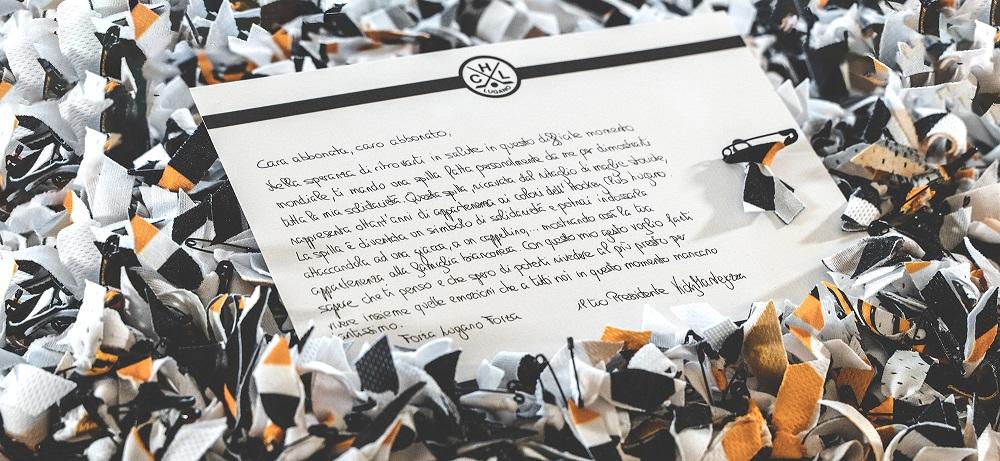 HCL
LUGANO
Cara abbonata, caro abbonato,
nella speranza di ritrovarti in salute in questo difficile momento
mondiale, ti mando una spilla fatta personalmente da me per dimostrarti
tutta la mia solidarietà. Questa spilla, ricavata dal ritaglio di maglie storiche,
rappresenta ottant'anni di appartenenza ai colori dell'Hockey Club Lugano.
La spilla è diventata un simbolo di solidarietà e potrai indossarla
attaccandola ad una giacca, a un cappellino,... mostrando così la tua
appartenenza alla famiglia bianconera. Con questo mio gesto voglio farti
sapere che ti penso e che spero di poterti rivedere al più presto per
vivere insieme quelle emozioni che a tutti noi in questo momento mancano
tantissimo.
Forza Lugano Forza
Il tuo Presidente Vicky Mantegazza